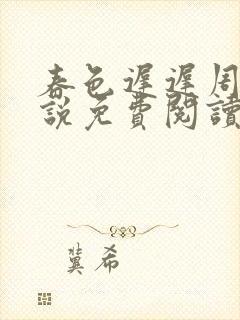 春色遲遲周
說免費閱讀
冀希